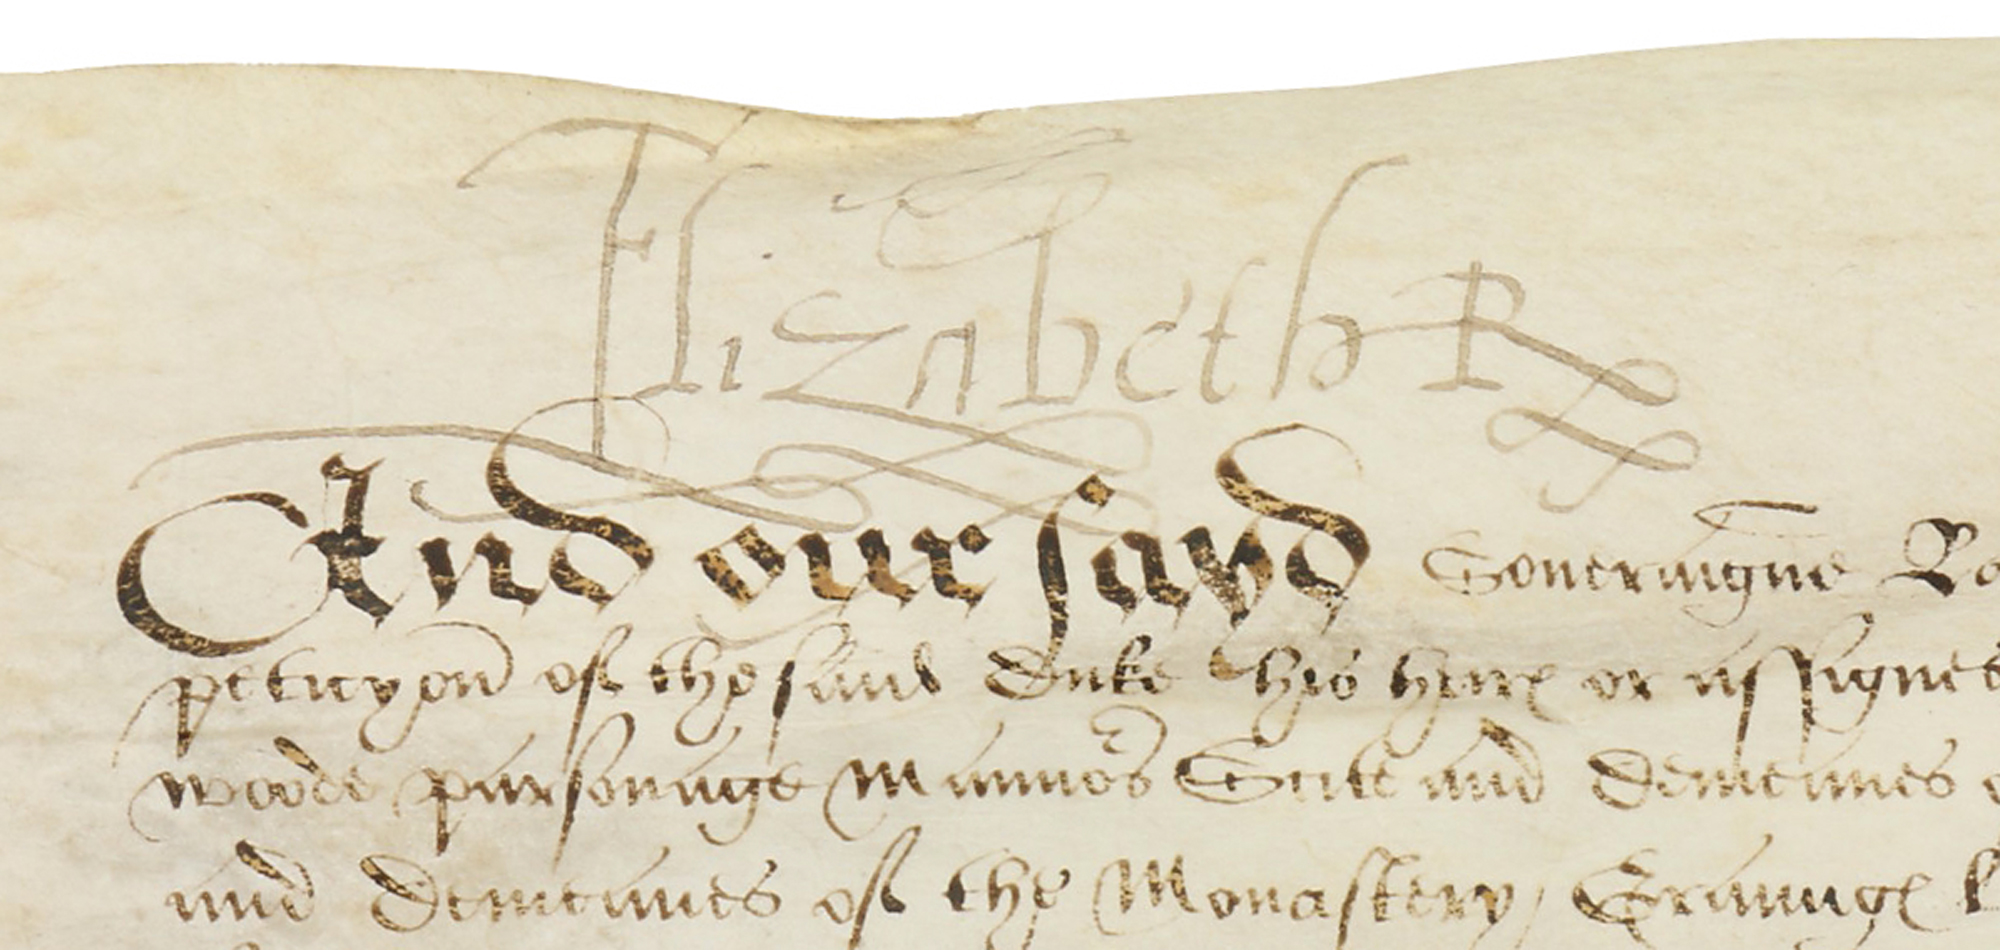 Elizabeth R
And our sayd Soveraigne
peticyon of the said Duke his heires or assignes
woode parsonage Mannor Scite and demeanes
and demeanes of the Monastery